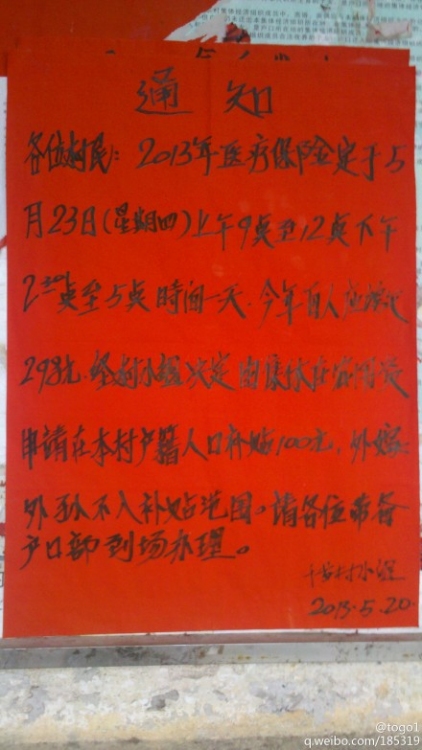 通知
各位村民：2013年医疗保险定于5
月23日（星期四）上午9点至12点下午
2:30点至5点时间一天.今年每人应缴
298元.经村小组决定由集体
申请在本村户籍人口补贴100元，外嫁
外孙不入补贴范围。请各位带备
户口部到场办理。
村小组
2013.5.20
@togo1
q.weibo.com/185319